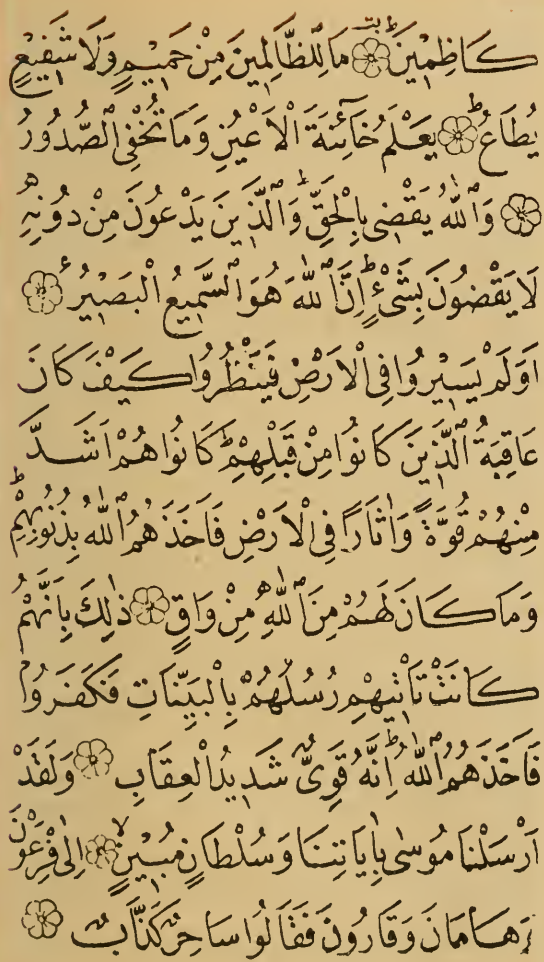 كَاظِمِينَ ۞ مَا لِلظَّالِمِينَ مِنْ حَمِيمٍ وَلَا شَفِيعٍ
يُطَاعُ ۞ يَعْلَمُ خَائِنَةَ الْاَعْيُنِ وَمَا تُخْفِى الصُّدُورُ
۞ وَاللّٰهُ يَقْضِى بِالْحَقِّ وَالَّذِينَ يَدْعُونَ مِنْ دُونِهِ
لَا يَقْضُونَ بِشَىْءٍ اِنَّ اللّٰهَ هُوَ السَّمِيعُ الْبَصِيرُ ۞
اَوَلَمْ يَسِيرُوا فِى الْاَرْضِ فَيَنْظُرُوا كَيْفَ كَانَ
عَاقِبَةُ الَّذِينَ كَانُوا مِنْ قَبْلِهِمْ كَانُوا هُمْ اَشَدَّ
مِنْهُمْ قُوَّةً وَاٰثَارًا فِى الْاَرْضِ فَاَخَذَهُمُ اللّٰهُ بِذُنُوبِهِمْ
وَمَا كَانَ لَهُمْ مِنَ اللّٰهِ مِنْ وَاقٍ ۞ ذٰلِكَ بِاَنَّهُمْ
كَانَتْ تَاْتِيهِمْ رُسُلُهُمْ بِالْبَيِّنَاتِ فَكَفَرُوا
فَاَخَذَهُمُ اللّٰهُ اِنَّهُ قَوِىٌّ شَدِيدُ الْعِقَابِ ۞ وَلَقَدْ
اَرْسَلْنَا مُوسٰى بِاٰيَاتِنَا وَسُلْطَانٍ مُبِينٍ ۞ اِلٰى فِرْعَوْنَ
وَهَامَانَ وَقَارُونَ فَقَالُوا سَاحِرٌ كَذَّابٌ ۞